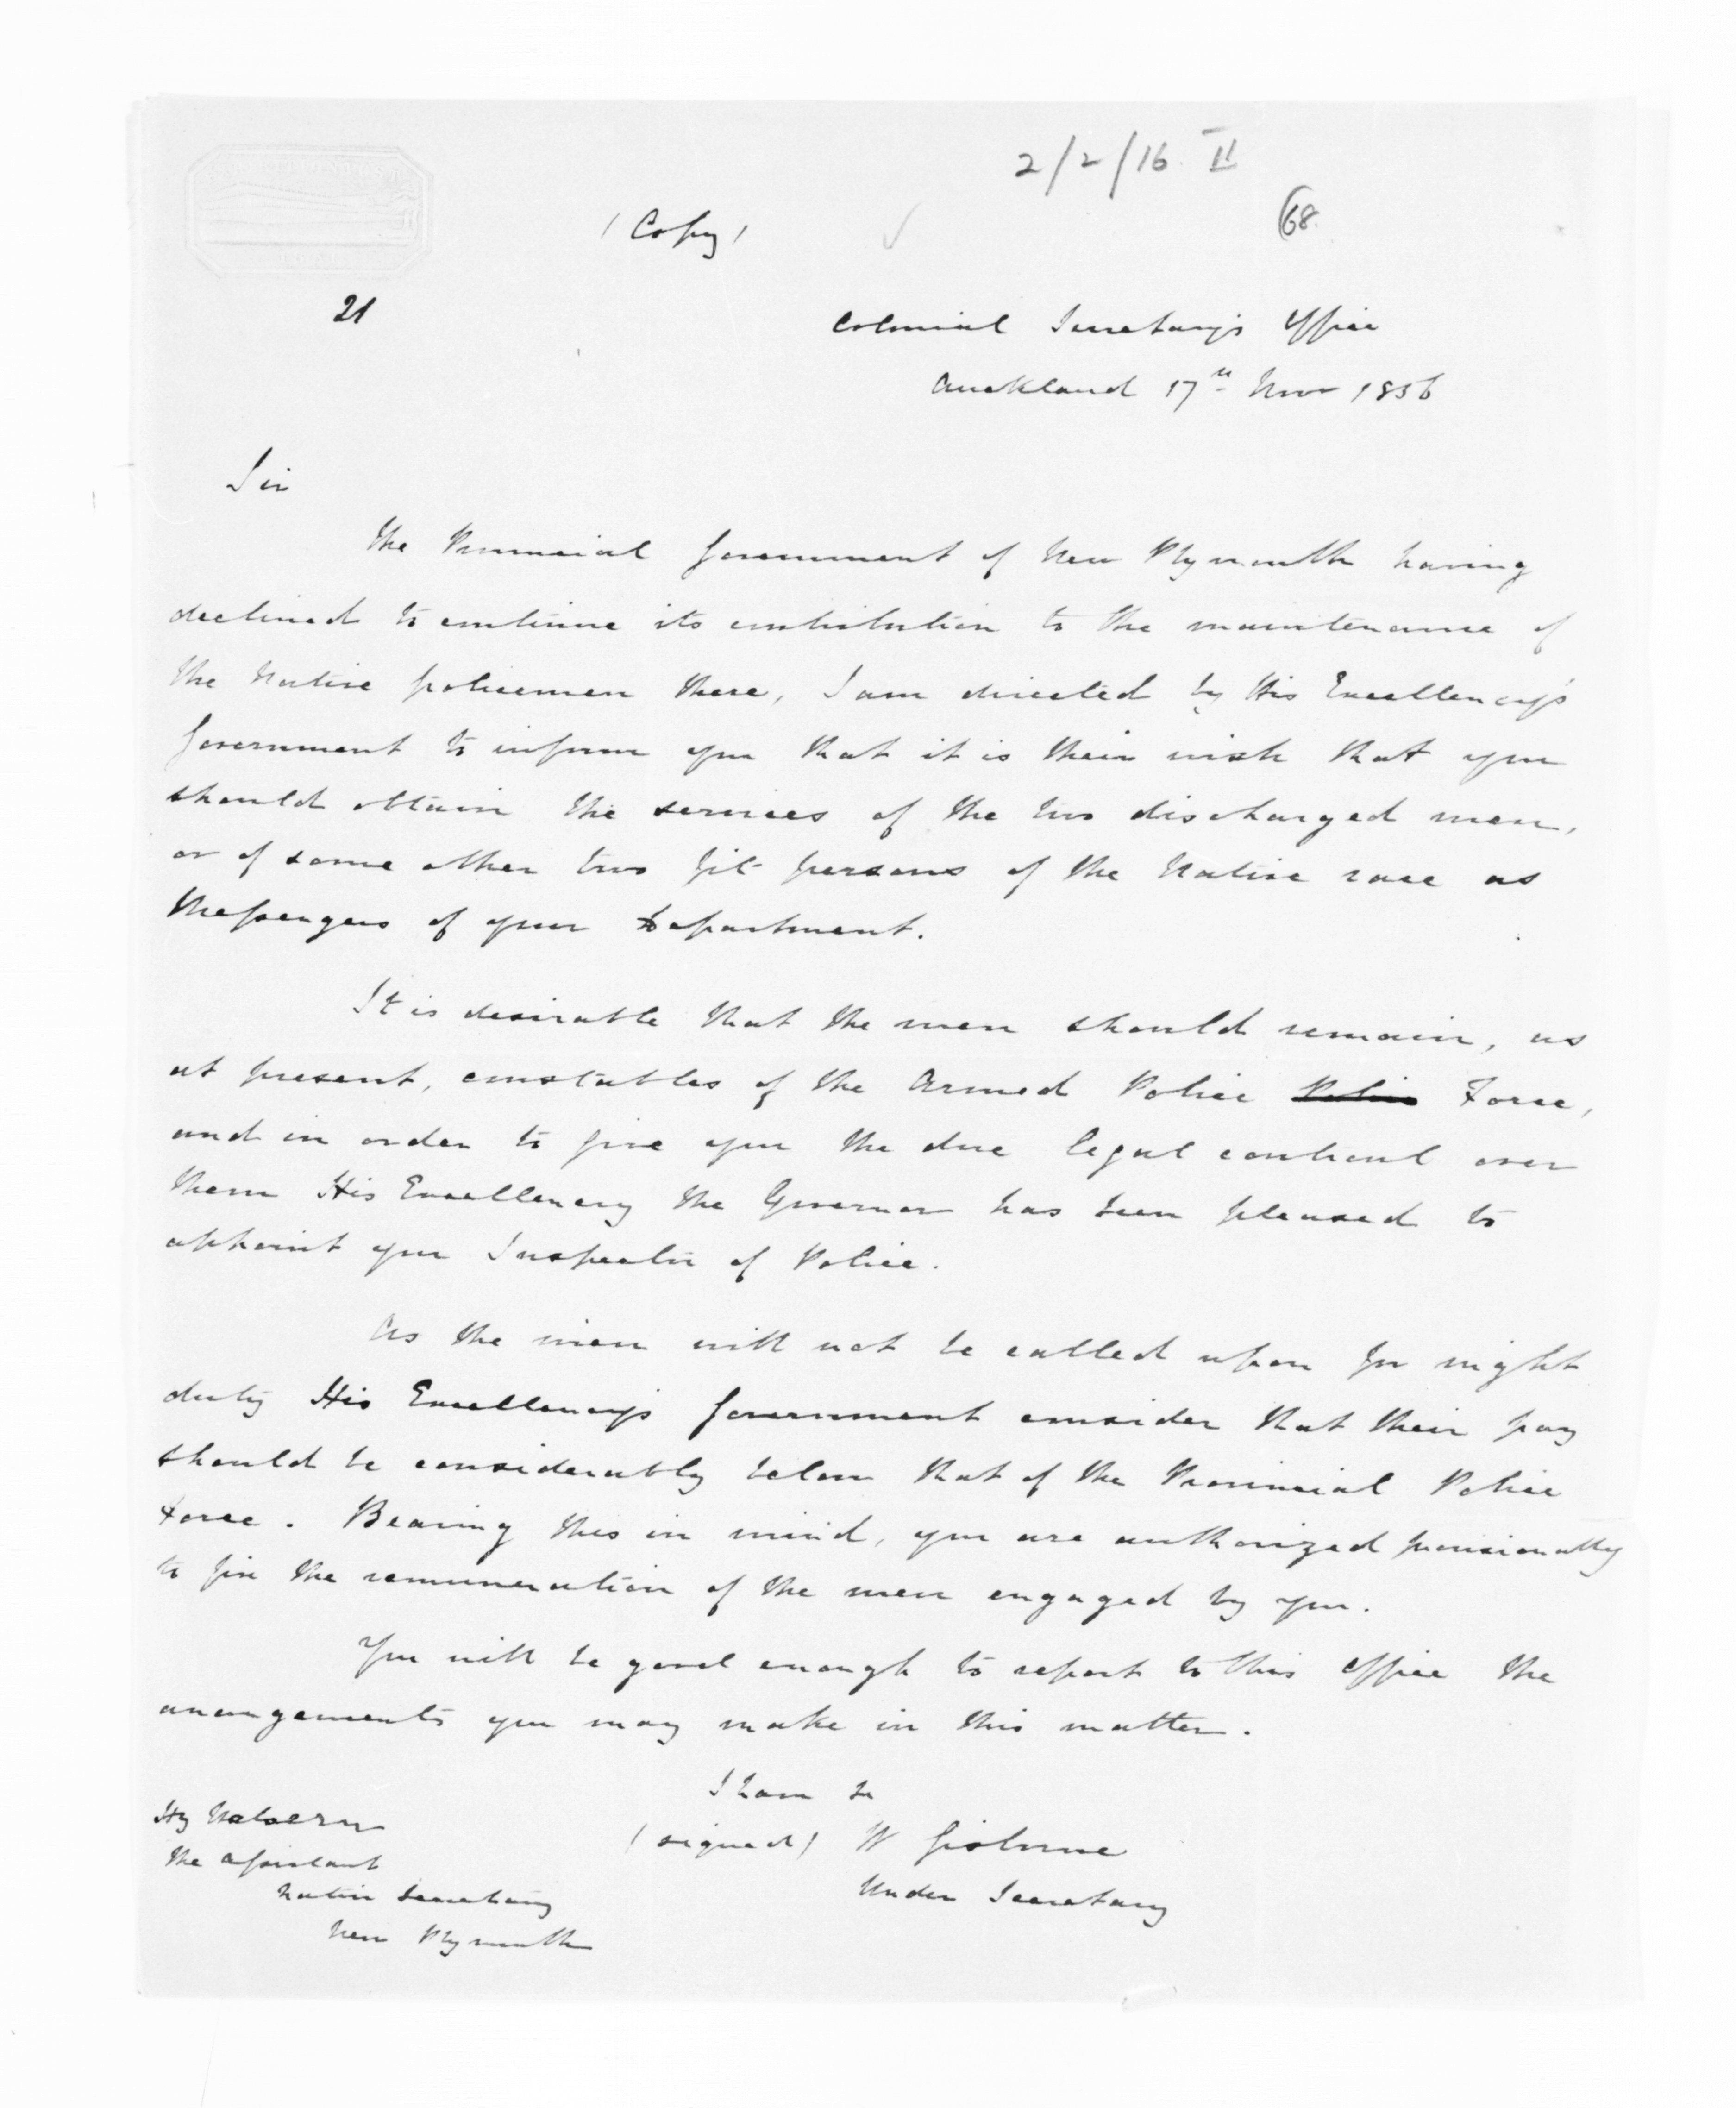 2/2/16 II
68.
(Copy)
21
Colonial Secretary's Office
Auckland 17th Novr 1856
Sir
The Provincial Government of New Plymouth having
declined to continue its contribution to the maintenance of
the Native policemen there, I am directed by His Excellency's
Government to inform you that it is their wish that you
should obtain the services of the two discharged men,
or of some other two fit persons of the Native race as
Messengers of your Department.
It is desirable that the men should remain, as
at present, constables of the Armed Police Police Force,
and in order to give you the due legal control over
them His Excellency the Governor has been pleased to
appoint you Inspector of Police.
As the men will not be called upon for night
duty His Excellency's Government consider that their pay
should be considerably below that of the Provincial Police
Force. Bearing this in mind, you are authorized provisionally
to fix the remuneration of the men engaged by you.
You will be good enough to report to this Office the
arrangements you may make in this matter.
I have &c
(signed) W Gisborne
Under Secretary
Hy Halse Esqr
The Assistant
Native Secretary
New Plymouth